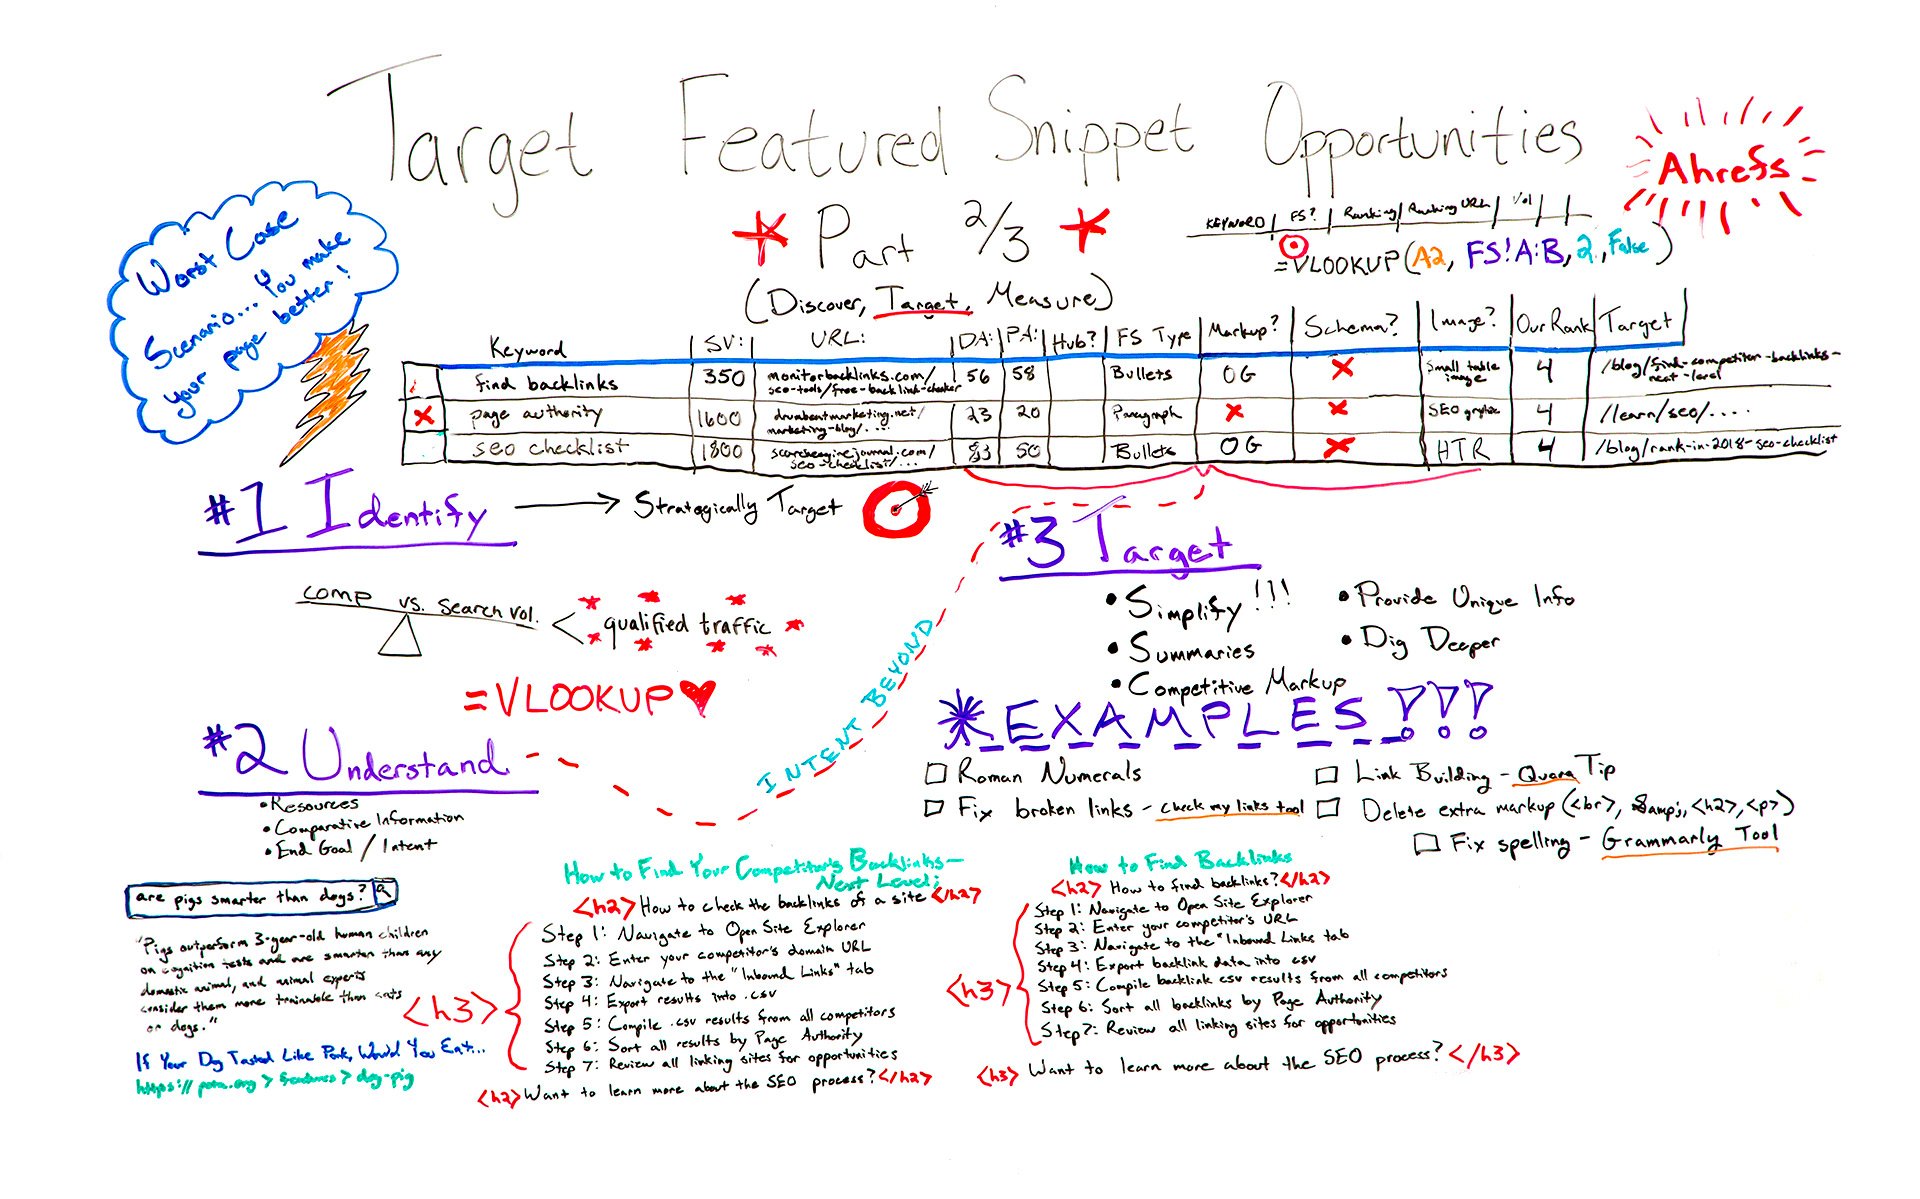 Target Featured Snippet Opportunities
Ahrefs
* Part 2/3 *
(Discover, Target, Measure)
KEYWORD | FS? | Ranking | Ranking URL | Vol
=VLOOKUP(A2, FS!A:B, 2, False)
Worst Case
Scenario... You make
your page better!
Keyword | SV: | URL: | DA: | PA: | Hub? | FS Type | Markup? | Schema? | Image? | Our Rank | Target
find backlinks | 350 | monitorbacklinks.com/ seo-tools/free-backlink-checker | 56 | 58 | Bullets | OG | X | Small table image | 4 | /blog/find-competitor-backlinks-next-level
X | page authority | 1600 | drumbeatmarketing.net/ marketing-blog/... | 23 | 20 | Paragraph | X | X | SEO | 4 | /learn/seo/....
seo checklist | 1800 | searchenginejournal.com/ seo-checklist/... | 83 | 50 | Bullets | OG | X | HTR | 4 | /blog/rank-in-2018-seo-checklist
#1 Identify → Strategically Target
comp vs. search vol. < qualified traffic
=VLOOKUP
#2 Understand
• Resources
• Comparative Information
• End Goal / Intent
INTENT BEYOND
#3 Target
• Simplify!!!
• Summaries
• Competitive Markup
• Provide Unique Info
• Dig Deeper
*EXAMPLES!!!
Roman Numerals
Fix broken links - check my links tool
Link Building - Quora Tip
Delete extra markup (<br>, &amp;, <h2>, <p>)
Fix spelling - Grammarly Tool
are pigs smarter than dogs?
"Pigs outperform 3-year-old human children
on cognition tests and are smarter than any
domestic animal, and animal experts
consider them more trainable than cats
or dogs."
If Your Dog Tasted Like Pork, Would You Eat...
https://peta.org > features > dog-pig
How to Find Your Competitor's Backlinks—
Next Level:
<h2> How to check the backlinks of a site </h2>
<h3>
Step 1: Navigate to Open Site Explorer
Step 2: Enter your competitor's domain URL
Step 3: Navigate to the "Inbound Links" tab
Step 4: Export results into .csv
Step 5: Compile .csv results from all competitors
Step 6: Sort all results by Page Authority
Step 7: Review all linking sites for opportunities
<h2> Want to learn more about the SEO process? </h2>
How to Find Backlinks
<h2> How to find backlinks? </h2>
<h3>
Step 1: Navigate to Open Site Explorer
Step 2: Enter your competitor's URL
Step 3: Navigate to the "Inbound Links tab
Step 4: Export backlink data into csv
Step 5: Compile backlink csv results from all competitors
Step 6: Sort all backlinks by Page Authority
Step 7: Review all linking sites for opportunities
<h3> Want to learn more about the SEO process? </h3>